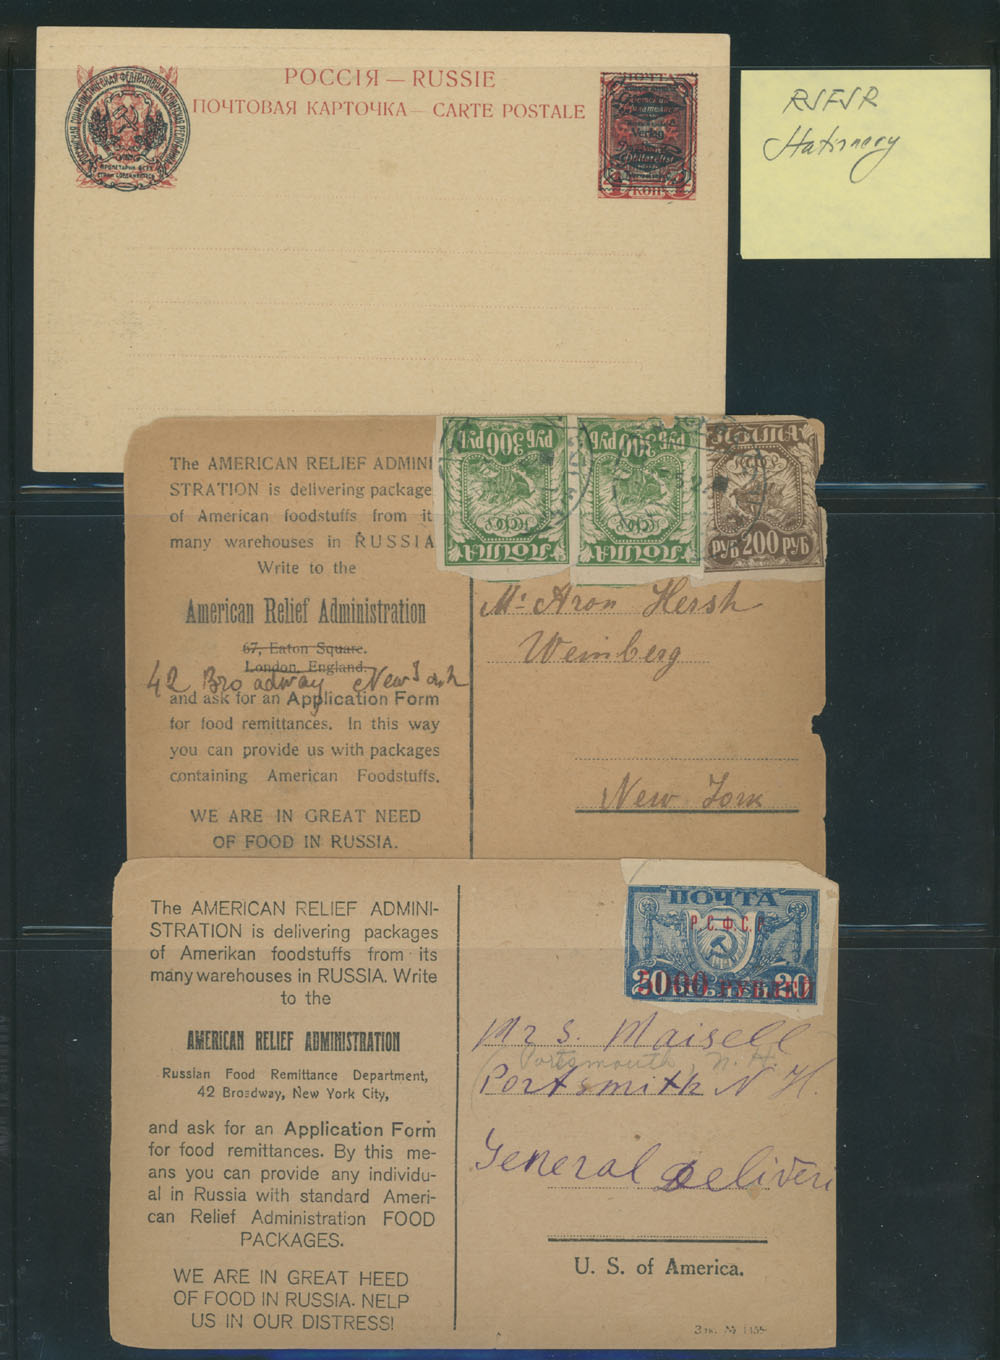 РОССІЯ — RUSSIE
ПОЧТОВАЯ КАРТОЧКА — CARTE POSTALE
ПОЧТА
Verlag
Philatelist
4 КОП 4
RSFSR
Stationery
The AMERICAN RELIEF ADMINI
STRATION is delivering package
of American foodstuffs from it
many warehouses in RUSSIA
Write to the
American Relief Administration
67, Eaton Square.
London, England.
42 Broadway New York
and ask for an Application Form
for food remittances. In this way
you can provide us with packages
containing American Foodstuffs.
WE ARE IN GREAT NEED
OF FOOD IN RUSSIA.
РУБ 300 РУБ
РСФСР
ПОЧТА
РУБ 300 РУБ
РСФСР
ПОЧТА
ПОЧТА
РСФСР
РУБ 200 РУБ
Mr Aron Hersh
Weinberg
New York
The AMERICAN RELIEF ADMINI-
STRATION is delivering packages
of Amerikan foodstuffs from its
many warehouses in RUSSIA. Write
to the
AMERICAN RELIEF ADMINISTRATION
Russian Food Remittance Department,
42 Broadway, New York City,
and ask for an Application Form
for food remittances. By this me-
ans you can provide any individu-
al in Russia with standard Ameri-
can Relief Administration FOOD
PACKAGES.
WE ARE IN GREAT HEED
OF FOOD IN RUSSIA. NELP
US IN OUR DISTRESS!
ПОЧТА
Р.С.Ф.С.Р.
5000 РУБЛЕЙ
20 20
Mrs. Maisell
Portsmouth, N. H.
Portsmith N H.
General Deliveri
U. S. of America.